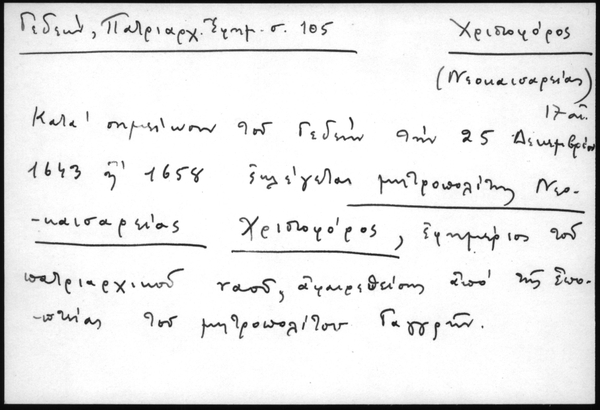 Γεδεών, Πατριαρχ. Ἐφημ. σ. 105
Χριστοφόρος
(Νεοκαισαρείας)
17 αἰ.
Κατά σημείωσιν τοῦ Γεδεών τήν 25 Δεκεμβρίου
1643 ἤ 1658 ἐκλέγεται μητροπολίτης Νεο-
-καισαρείας Χριστοφόρος, ἐφημέριος τοῦ
πατριαρχικοῦ ναοῦ, ἀφαιρεθείσης ἀπό τῆς ἐπο-
-πτείας τοῦ μητροπολίτου Γαγγρῶν.